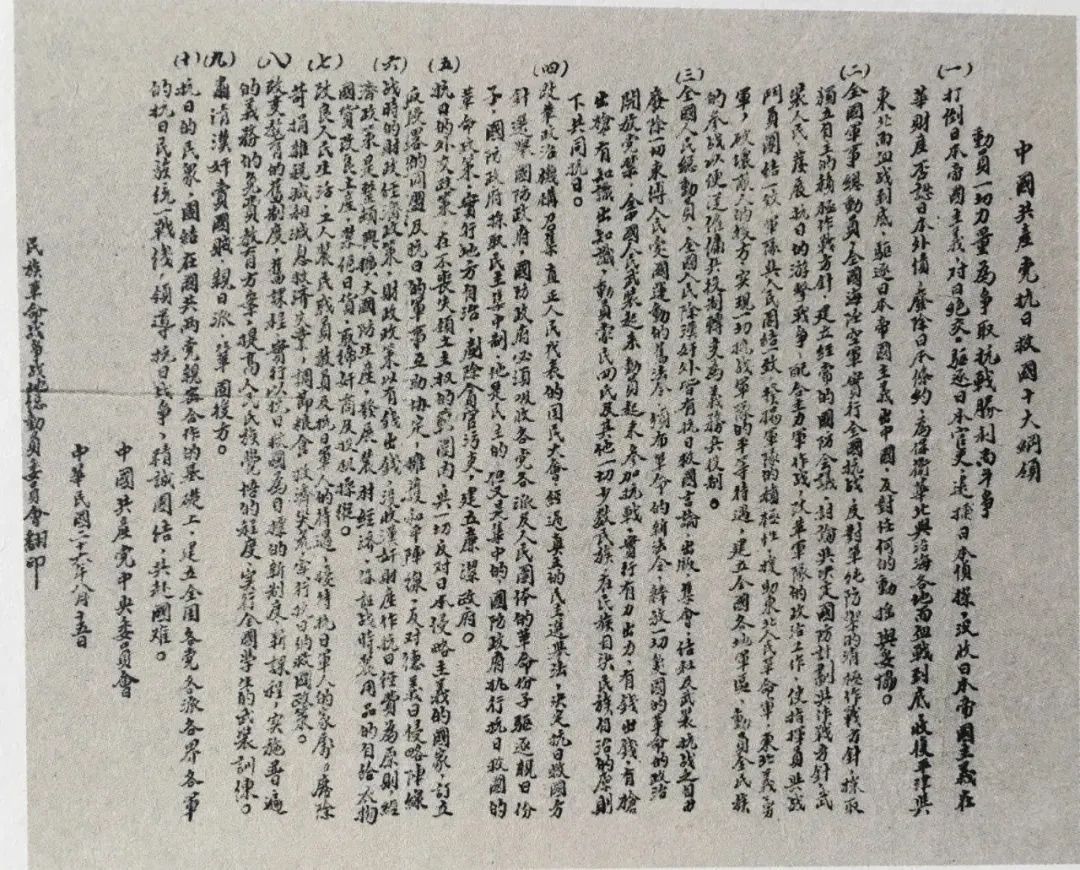 中國共產党抗日救國十大綱領
動員一切力量為爭取抗戰勝利而斗爭
(一)打倒日本帝國主義，对日絕交。驅逐日本官吏，逮捕日本偵探，沒收日本帝國主義在
華財產，否認日本外債，廢除日本條約，為保衛華北與沿海各地而血戰到底，收復平津與
東北而血戰到底，驅逐日本帝國主義出中國，反對任何的動搖與妥協。
(二)全國軍事總動員，全國海陸空軍實行全國抗戰，反對單純防禦的消極作戰方針，採取
獨立自主的積極作戰方針，建立經常的國防会議，討論與決定國防計劃與作戰方針，武
裝人民，發展抗日的游擊戰争，配合主力軍作戰，改革軍隊的政治工作，使指揮員與战
鬥員團結一致，軍隊與人民團結一致，發揚軍隊的積極性，援助東北人民革命軍，東北義勇
軍，破壞敵人的後方，實現一切抗战軍隊的平等待遇，建立全國各地軍區，動員全民族
的参战，以便逐漸從僱傭兵役制轉变為義務兵役制。
(三)全國人民總動員，全國人民除漢奸外皆有抗日救國言論，出版，集會，結社及武裝抗战之自由
廢除一切束縛人民愛國運動的舊法令，頒布革命的新法令，釋放一切愛國的革命的政治
開放党禁，全國人民武装起來，動員起來，参加抗戰，實行有力出力，有錢出錢，有槍
出槍，有知識出知識，動員蒙民回民及其他一切少數民族，在民族自決民族自治的原則
下共同抗日。
(四)改革政治機構，召集真正人民代表的國民大會，經過真正的民主選舉法，決定抗日救國方
針，選舉國防政府，國防政府必須吸收各党各派及人民團体的革命份子，驅逐親日份
子，國防政府採取民主集中制，他是民主的，但又是集中的，國防政府執行抗日救國的
革命政策，實行地方自治，剷除貪官污吏，建立廉潔政府。
(五)抗日的外交政策，在不喪失領土主权的範圍內，與一切反对日本侵略主義的國家，訂立
反侵略的同盟及抗日的軍事互助協定，擁護和平陣線，反对德義日侵略陣線
(六)战時的財政經濟政策，財政政策以有钱出錢，沒收漢奸財產作抗日經費為原則，經
濟政策是整頓與擴大國防生產，發展農村經濟，保証战時農用品的自給，衣物
國貨改良土產，禁绝日貨，取締奸商及投机操縱。
(七)改良人民生活，工人農民職員教員及抗日軍人的待遇，優待抗日軍人的家屬，廢除
苛捐雜税，減租減息，救濟災荒，調節粮食，救濟失業，實行抗日的救國政策。
(八)改變教育的舊制度，舊課程，實行以抗日救國為目標的新制度，新課程，实施普遍
的義務的免费教育方案，提高人民民族覺悟的程度，实行全國学生的武裝訓練。
(九)肅清漢奸賣國賊親日派，鞏固後方。
(十)抗日的民衆團結，在國共两党親密合作的基礎上，建立全國各党各派各界各軍
的抗日民族統一戰线，領導抗日战争，精誠團结，共赴國难。
中國共產党中央委員會
中華民國二十六年八月十五日
民族革命战爭战地總動員委員會翻印